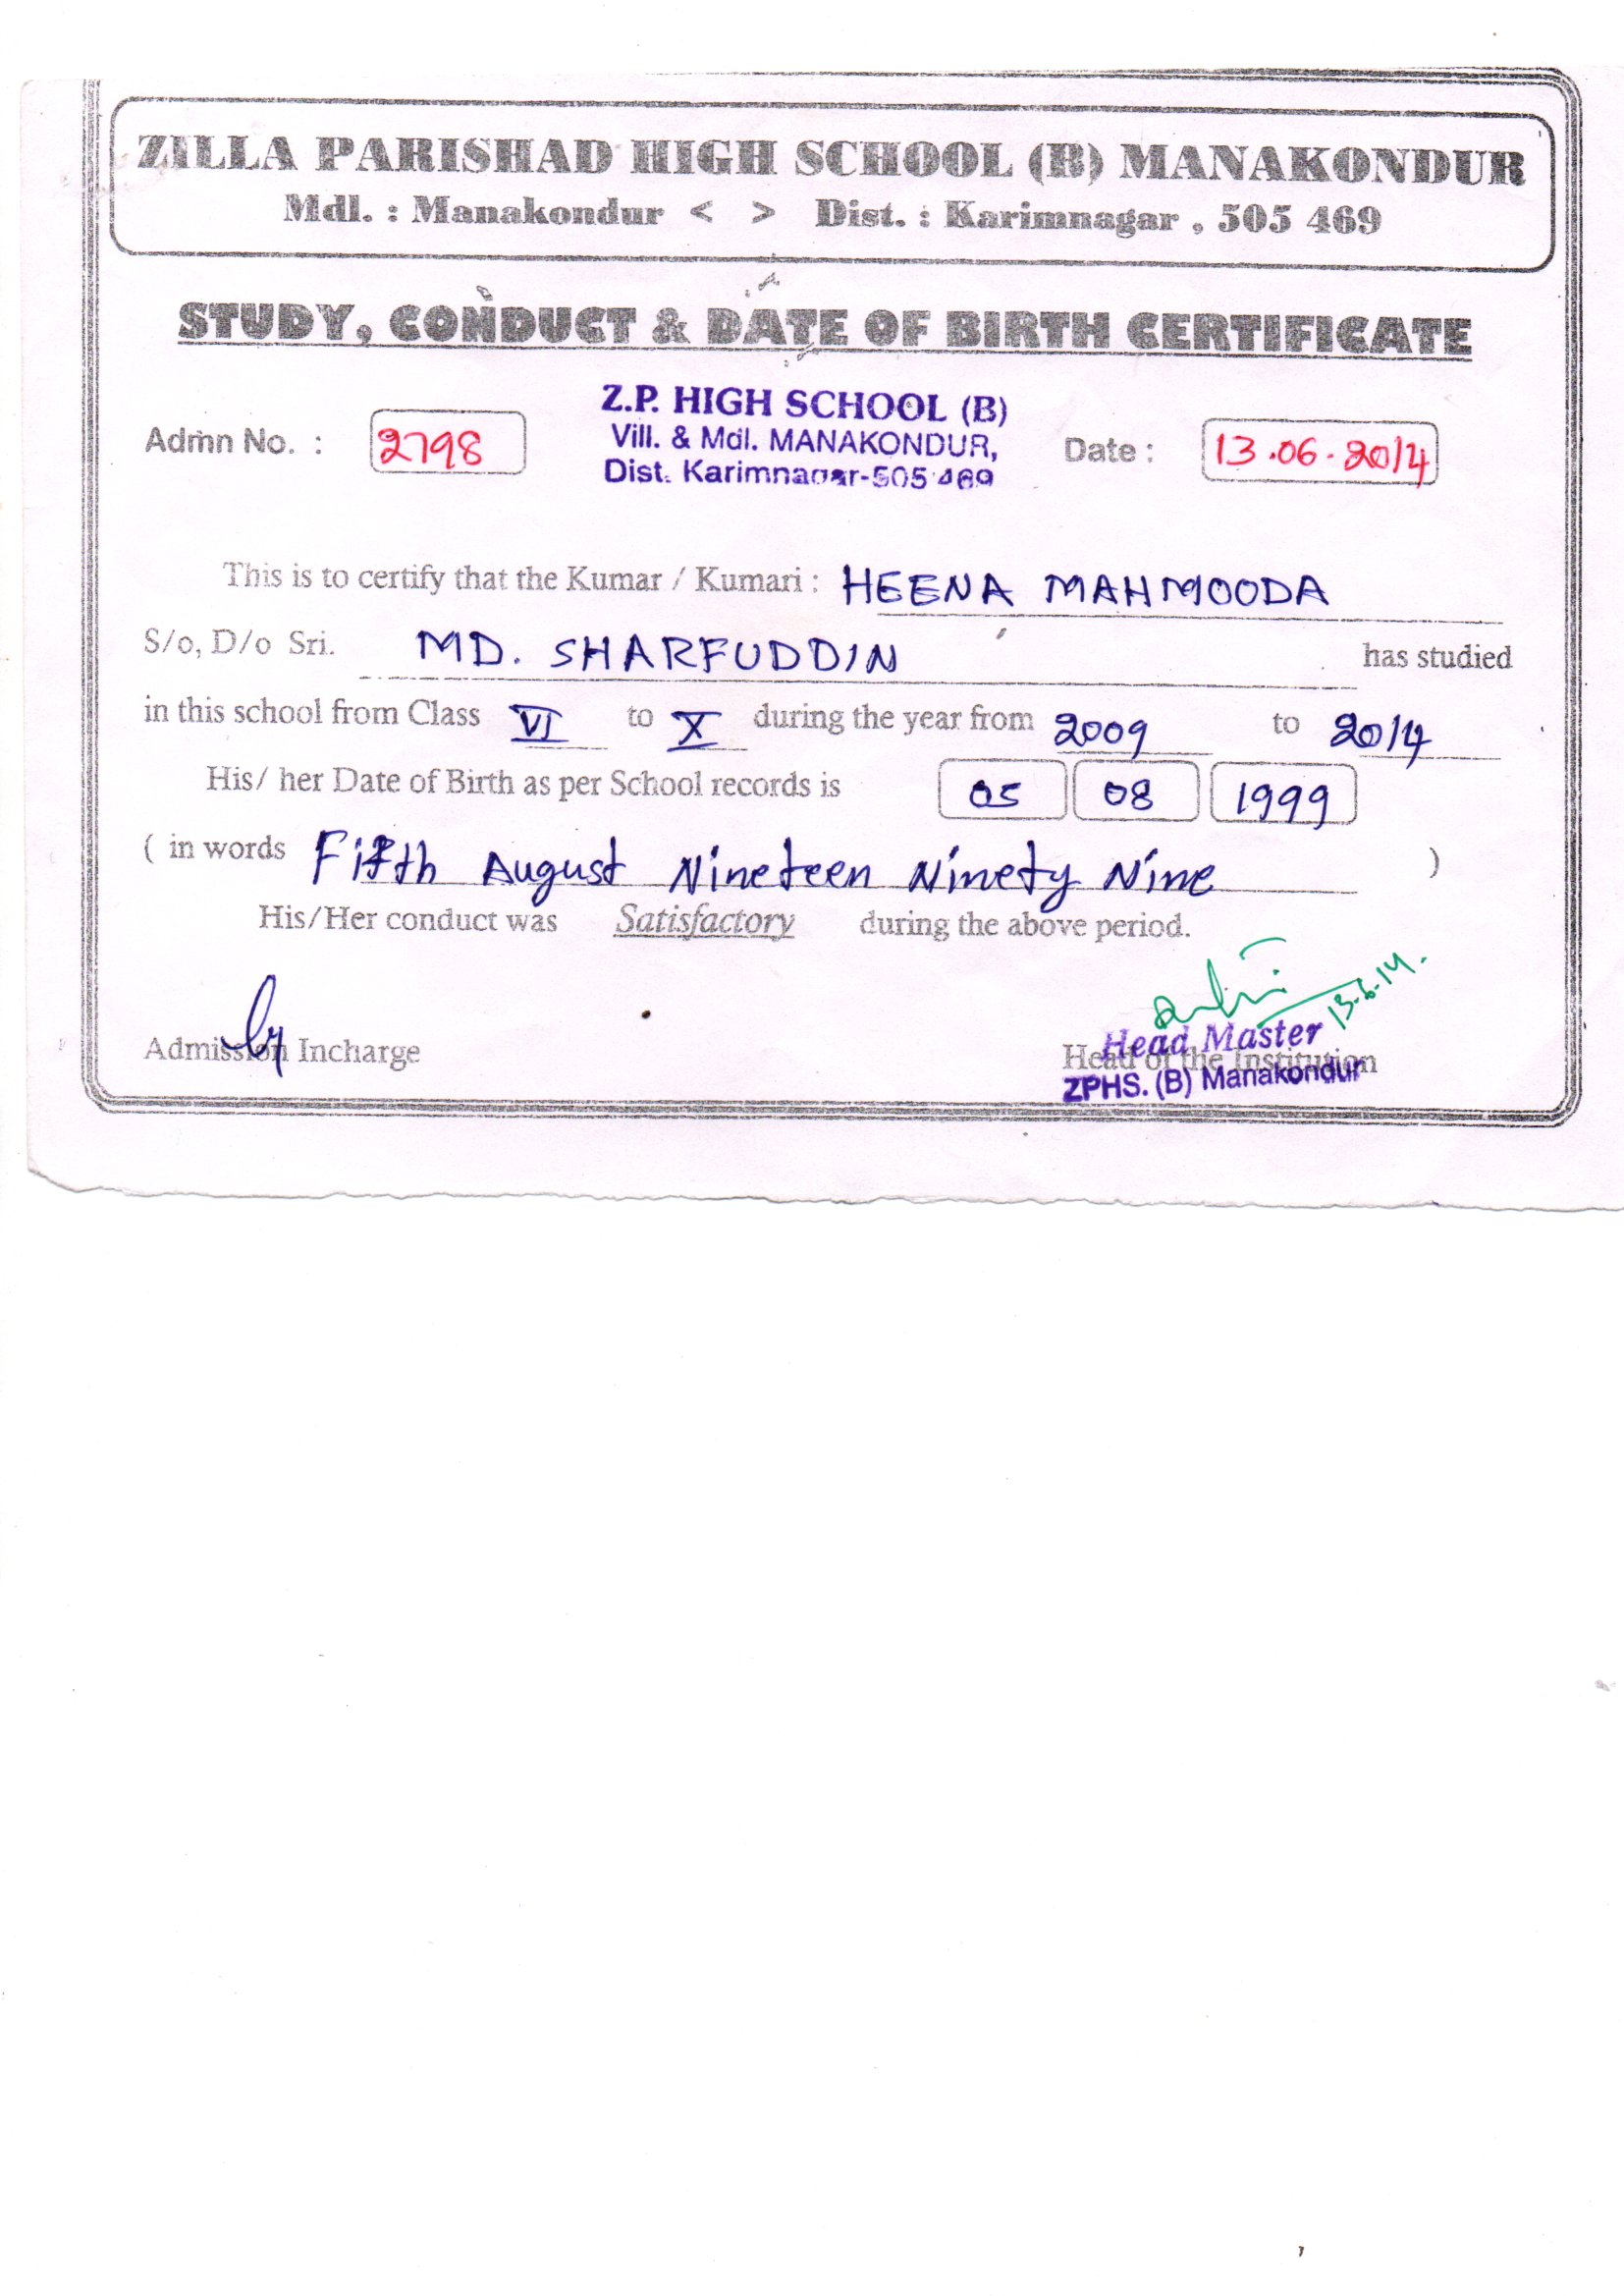 ZILLA PARISHAD HIGH SCHOOL (B) MANAKONDUR
Mdl. : Manakondur < > Dist. : Karimnagar , 505 469
STUDY, CONDUCT & DATE OF BIRTH CERTIFICATE
Z.P. HIGH SCHOOL (B)
Vill. & Mdl. MANAKONDUR,
Dist. Karimnagar-505 469
Admn No. : 2798 Date : 13.06.2014
This is to certify that the Kumar / Kumari : HEENA MAHMOODA
S/o, D/o Sri. MD. SHARFUDDIN has studied
in this school from Class VI to X during the year from 2009 to 2014
His/ her Date of Birth as per School records is 05 08 1999
( in words Fifth August Nineteen Ninety Nine )
His/Her conduct was Satisfactory during the above period.
13-6-14.
Admission Incharge
Head Master
Head of the Institution
ZPHS. (B) Manakondur